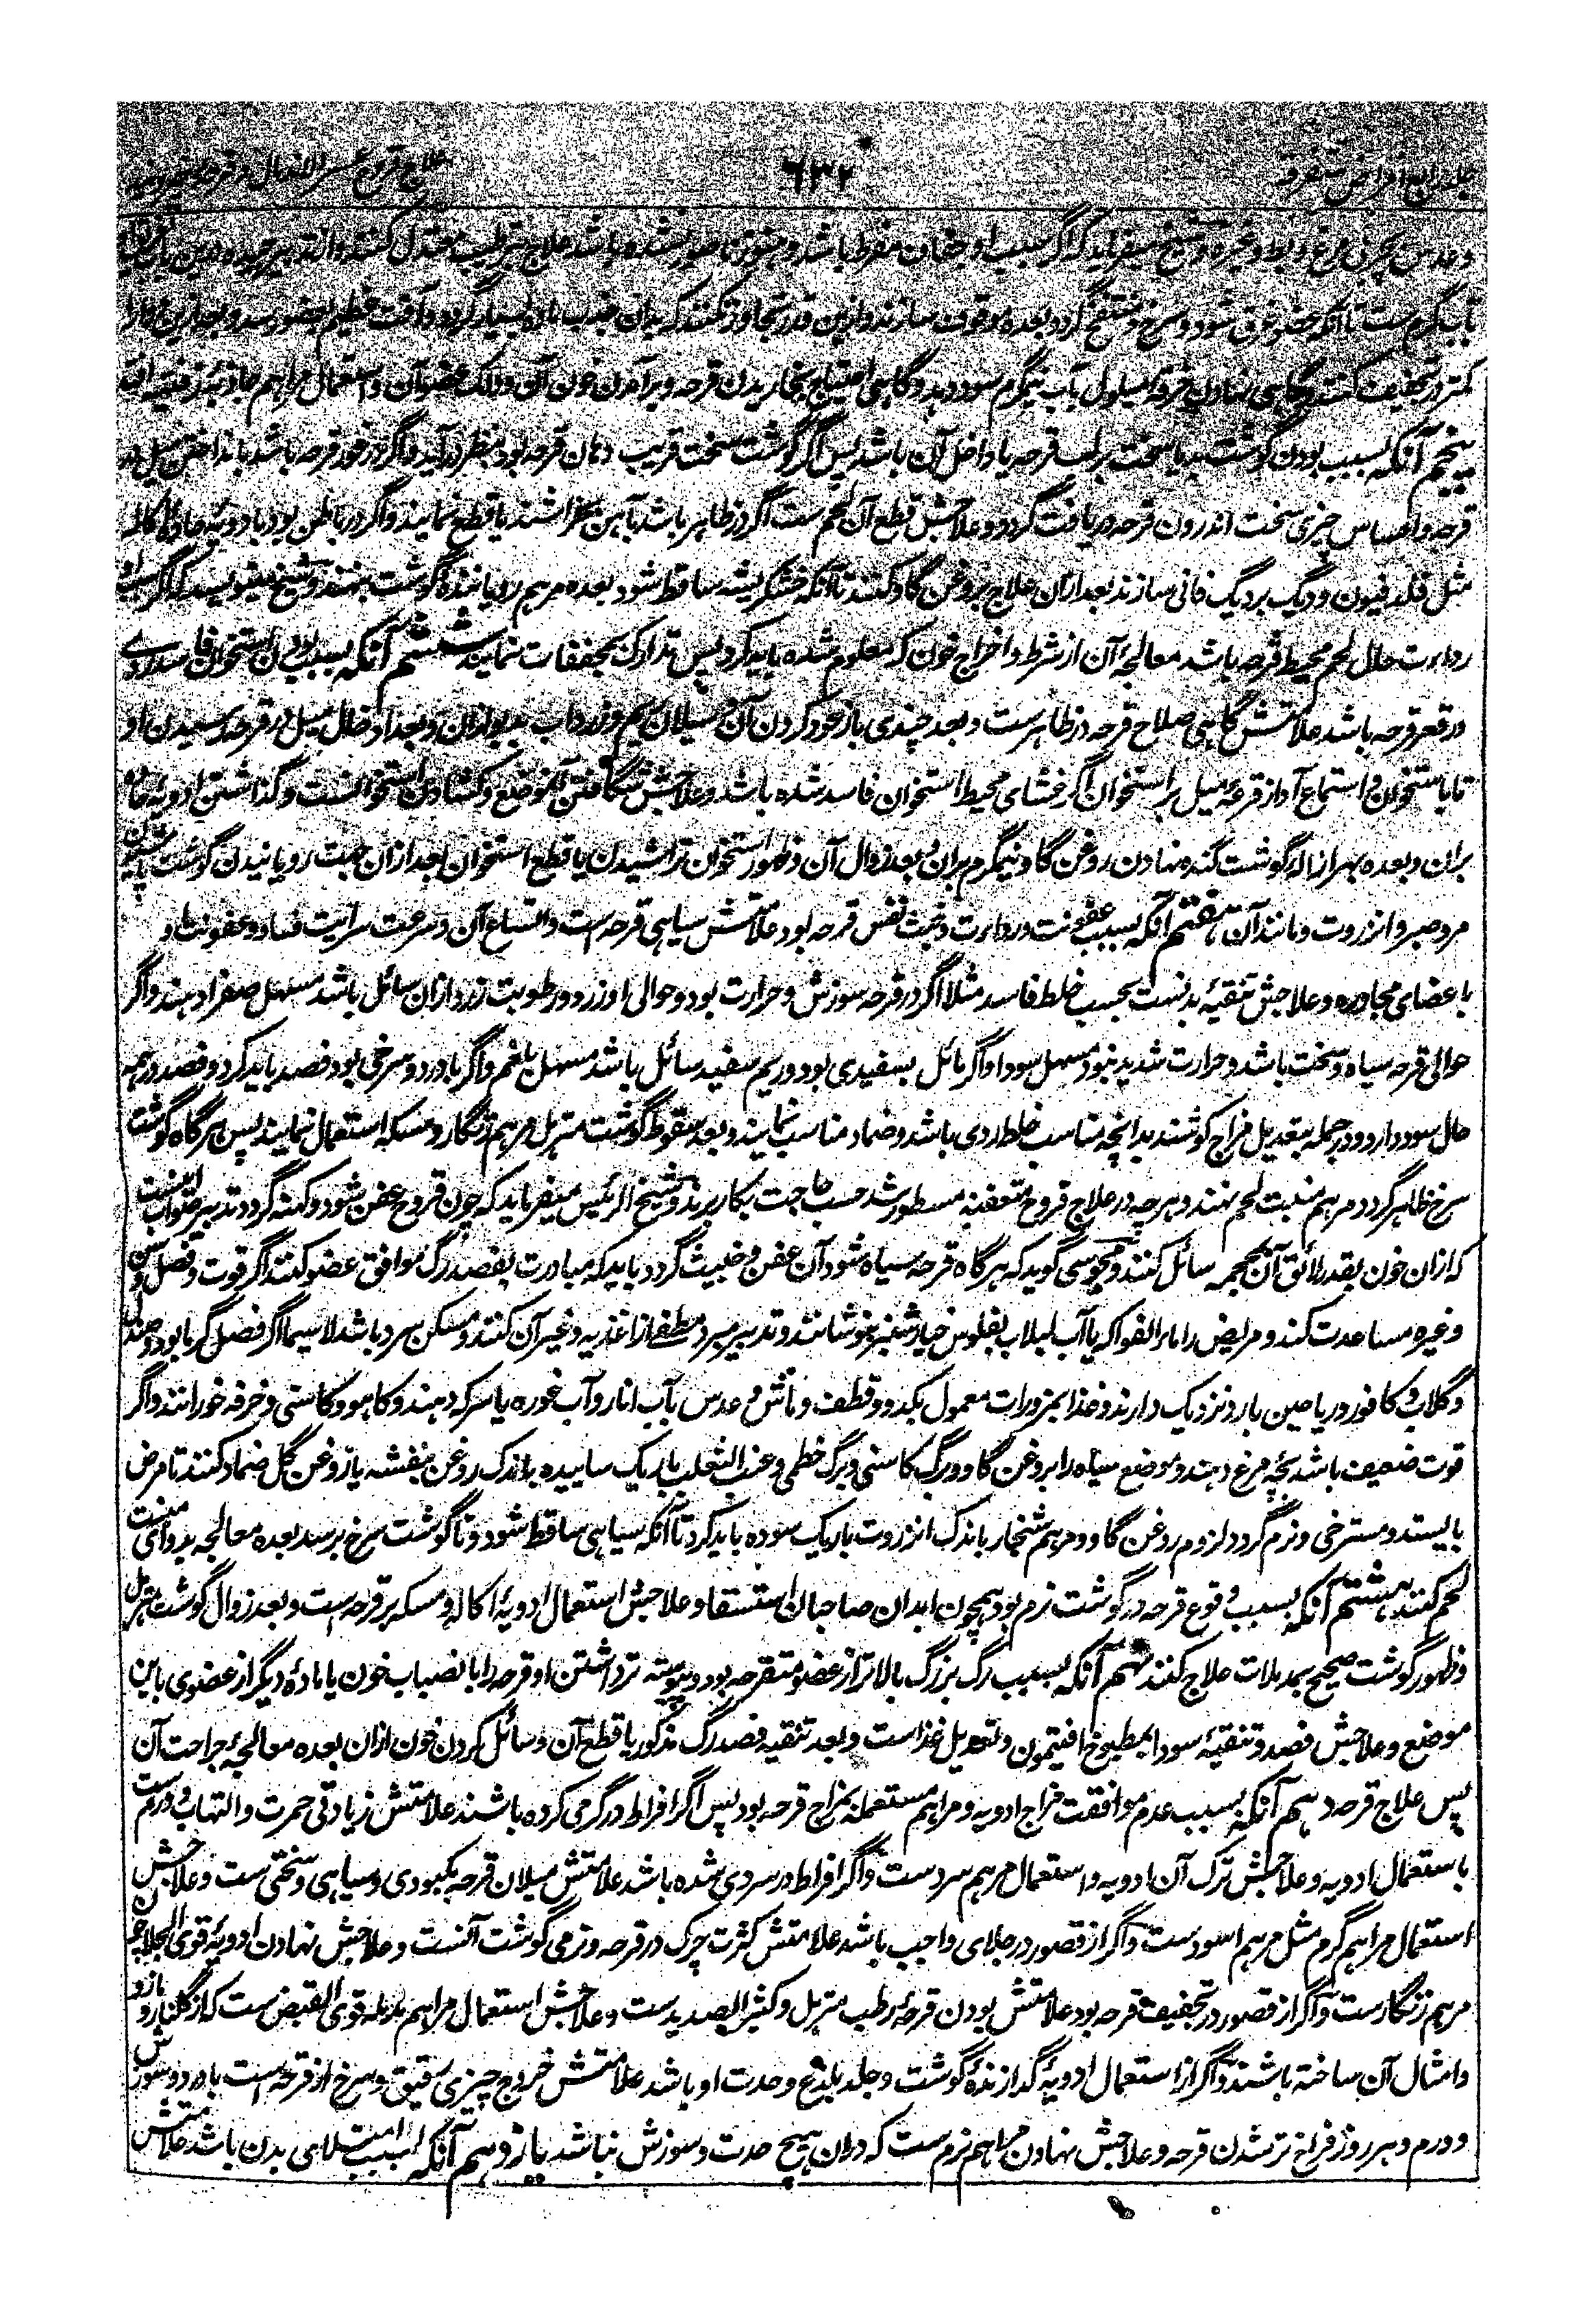 ۶۳۲
و عدس بچربی مرغ و بط و غیره و شیخ میفرماید که اگر سبب او جفاف مفرط باشد و هنوز ناصور نشده باشد علاج بترطیب معتدل کنند و از تدبیر جیده درین باب
بآب گرم ست تا آنکه عضو سرخ شود و منتفخ گردد بعده موقوف سازند و ازین قدر تجاوز نکنند که بدان جذب ماده بسیار گردد و آفت عظیم بعضو رسد و
کمتر در تجفیف کنند و گاهی نهادن خرقه مبلول بآب نیمگرم سود دهد و گاهی احتیاج بخاریدن قرحه و برآمدن خون آن و دلک عضو آن و استعمال مراهم جاذبه
پنجم آنکه بسبب بودن گوشت بد یا سخت بر لب قرحه یا داخل آن باشد پس اگر گوشت سخت قریب دهان قرحه بود بنظر در آید و اگر در غور قرحه باشد بانداختن میل در
قرحه و احساس چیزی سخت اندرون قرحه دریافت گردد و علاجش قطع آن لحم ست اگر در ظاهر باشد بآهن بخراشند یا قطع نمایند و اگر در باطن بود بادویه حاده اکاله
مثل قلدفیون و دیگ بردیگ فانی سازند بعد ازان علاج بروغن گاو کنند تا آنکه خشکریشه ساقط شود بعده مرهم رویاننده گوشت بنهند و شیخ مینویسد که اگر سبب او
رداءت حال لحم محیط قرحه باشد معالجۀ آن از شرط و اخراج خون که معلوم شده باید کرد پس تدارک بمجففات نمایند ششم آنکه بسبب بودن استخوان فاسد ردی
در قعر قرحه باشد علامتش گاهی صلاح قرحه در ظاهرست و بعد چندی باز عود کردن آن و سیلان ریم و زرداب بدبو ازان و بعد ادخال میل در قرحه رسیدن او
تا باستخوان و استماع آواز قرعه میل بر استخوان اگر غشای محیط استخوان فاسد شده باشد و علاجش شگافتن آنموضع و کشادن استخوانست و گذاشتن ادویه حاده
بران و بعده بهر ازاله گوشت گنده نهادن روغن گاو نیمگرم بران و بعد زوال آن و ظهور استخوان تراشیدن یا قطع استخوان بعد ازان جهت رویانیدن گوشت پاشیدن
مر و صبر و انزروت و مانند آن هفتم آنکه بسبب عفونت و رداءت و خبث نفس قرحه بود علامتش سیاهی قرحه است و اتساع آن و سرعت سرایت فساد و عفونت او
باعضای مجاوره و علاجش تنقیۀ بدنست بحسب خلط فاسد مثلا اگر در قرحه سوزش و حرارت بود و حوالی او زرد و رطوبت زرد ازان سائل باشد مسهل صفرا دهند و اگر
حوالی قرحه سیاه و سخت باشد و حرارت شدید نبود مسهل سودا و اگر مائل بسفیدی بود و ریم سفید سائل باشد مسهل بلغم و اگر با درد و سرخی بود فصد باید کرد و فصد در همه
حال سود دارد و در جمله بتعدیل مزاج کوشند بدانچه مناسب خلط ردی باشد و ضماد مناسب نمایند و بعد سقوط گوشت مترہل مرهم زنگار و مسکه استعمال نمایند پس هرگاه گوشت
سرخ ظاهر گردد مرهم منبت لحم نهند و هرچه در علاج قروح متعفنه مسطور شد حسب حاجت بکار برند و شیخ الرئیس میفرماید که چون قروح عفن شود و کهنه گردد تدبیر صواب اینست
که ازان خون بقدر لائق آن بمحجمه سائل کنند و مجوسی گوید که هرگاه قرحه سیاه شود آن عفن و خبیث گردد باید که مبادرت بفصد رگ موافق عضو کنند اگر قوت و فصل و سن
و غیره مساعدت کند و مریض را ماء الفواکه یا آب لبلاب بفلوس خیارشنبر بنوشانند و تدبیر مبرد مطفی از اغذیه و غیر آن کنند و مسکن سرد باشد لاسیما اگر فصل گرما بود و صندل
و گلاب و کافور و ریاحین بارد نزدیک دارند و غذا بمزورات معمول بکدو و قطف و ماش و عدس بآب انار و آب غوره یا سرکه دهند و کاهو و کاسنی و خرفه خورانند و اگر
قوت ضعیف باشد بچۀ مرغ دهند و موضع سیاه را بروغن گاو و برگ کاسنی و برگ خطمی و عنب الثعلب باریک ساییده باندک روغن بنفشه یا روغن گل ضماد کنند تا مرض
بایستد و مسترخی و نرم گردد لزوم روغن گاو و مرهم شنجار باندک انزروت باریک سوده باید کرد تا آنکه سیاهی ساقط شود و تا گوشت سرخ برسد بعده معالجه بدوای منبت
لحم کنند هشتم آنکه بسبب وقوع قرحه در گوشت نرم بود همچون ابدان صاحبان استسقا و علاجش استعمال ادویۀ اکاله و مسکه بر قرحه است و بعد زوال گوشت مترہل
و ظهور گوشت صحیح بمدملات علاج کنند نهم آنکه بسبب رگ بزرگ بالاتر از عضو متقرحه بود و پیوسته تر داشتن او قرحه را بانصباب خون یا مادۀ دیگر از عضوی باین
موضع و علاجش فصد و تنقیۀ سودا بمطبوخ افتیمون و تعدیل غذاست و بعد تنقیه فصد رگ مذکور یا قطع آن و سائل کردن خون ازان بعده معالجۀ جراحت آن
پس علاج قرحه دهم آنکه بسبب عدم موافقت مزاج ادویه و مراهم مستعمله بمزاج قرحه بود پس اگر افراط در گرمی کرده باشند علامتش زیادتی حمرت و التهاب و ورم ست
باستعمال ادویه و علاجش ترک آن ادویه و استعمال مرهم سردست و اگر افراط در سردی شده باشد علامتش میلان قرحه بکبودی و سیاهی و سختی ست و علاجش
استعمال مراهم گرم مثل مرهم اسودست و اگر از قصور در جلای واجب باشد علامتش کثرت چرک در قرحه و نرمی گوشت آنست و علاجش نهادن ادویۀ قوی الجلا چون
مرهم زنگارست و اگر از قصور در تجفیف قرحه بود علامتش بودن قرحۀ رطب مترہل و کثیر الصدیدست و علاجش استعمال مراهم مدمله قوی القبض ست که از گلنار و مازو
و امثال آن ساخته باشند و اگر از استعمال ادویۀ گدازندۀ گوشت و جلد بلذع و حدت او باشد علامتش خروج چیزی رقیق و سرخ از قرحه است با درد و سوزش
و ورم و هر روز فراخ تر شدن قرحه و علاجش نهادن مراهم نرم ست که دران هیچ حدت و سوزش نباشد یازدهم آنکه بسبب امتلای بدن باشد علامتش